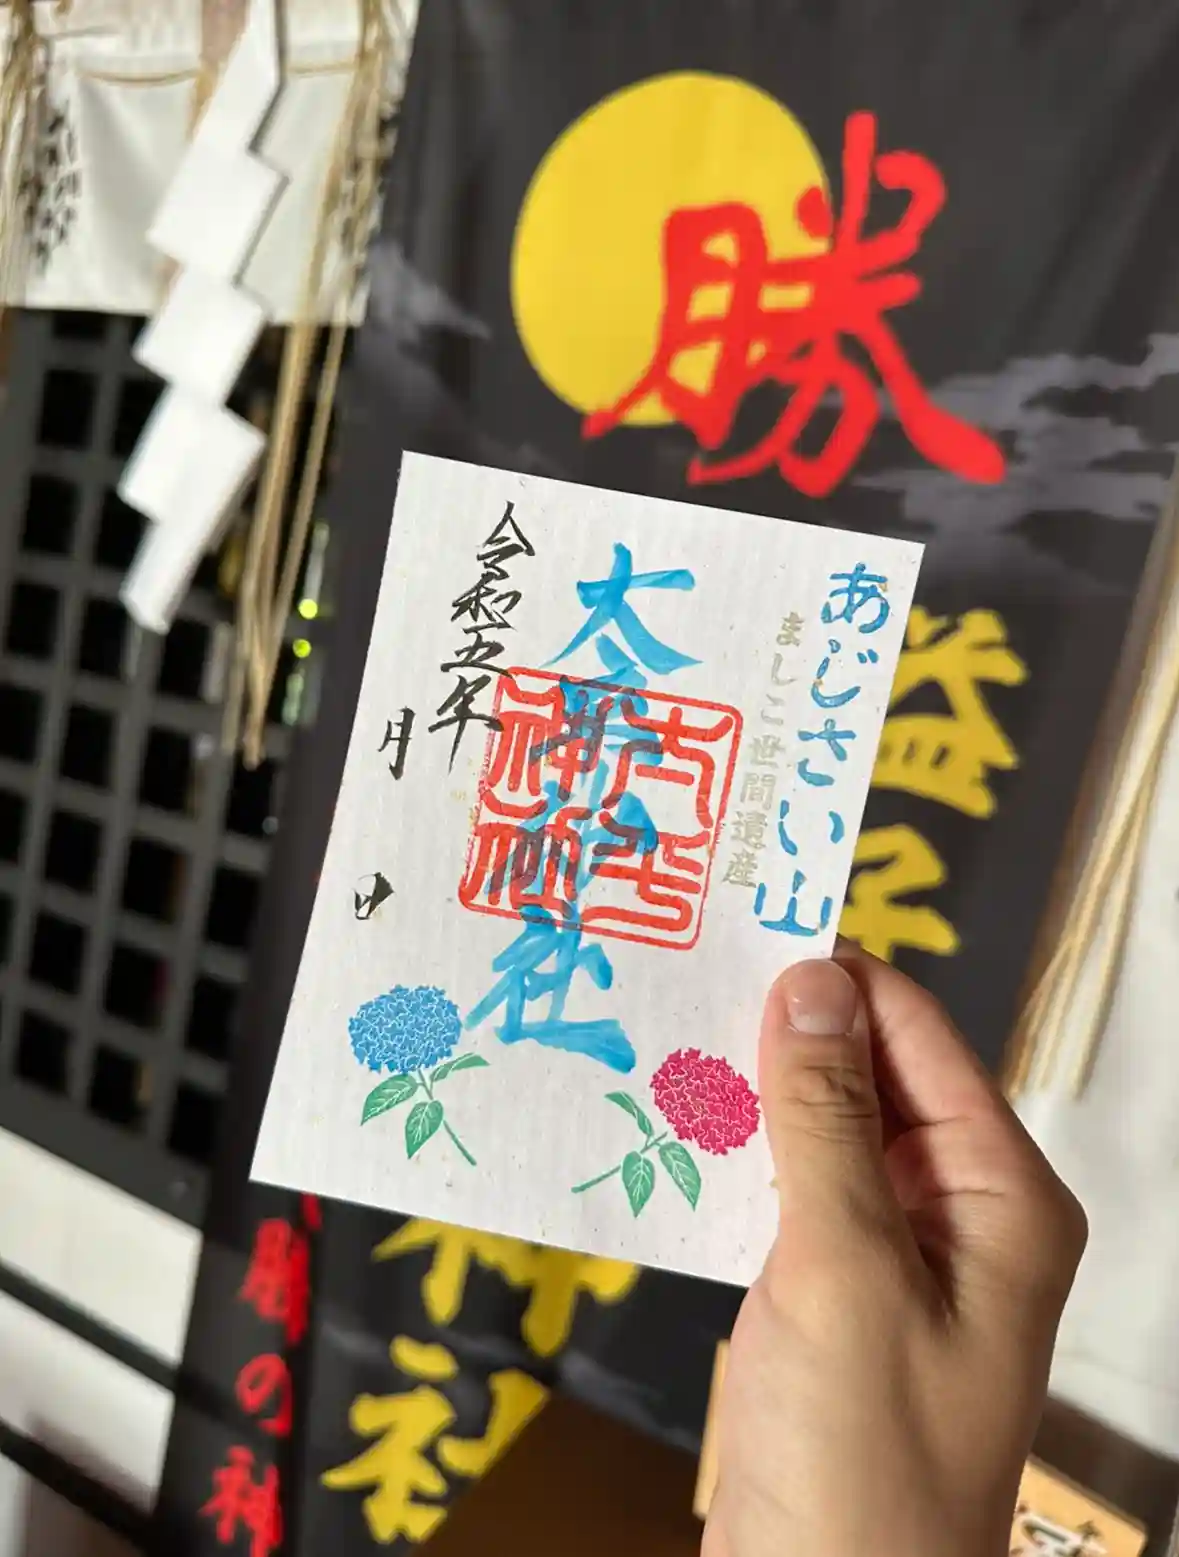 勝
益子
神社
あじさい山
ましこ世間遺産
太平神社
太平
神社
令和五年
月
日
の神